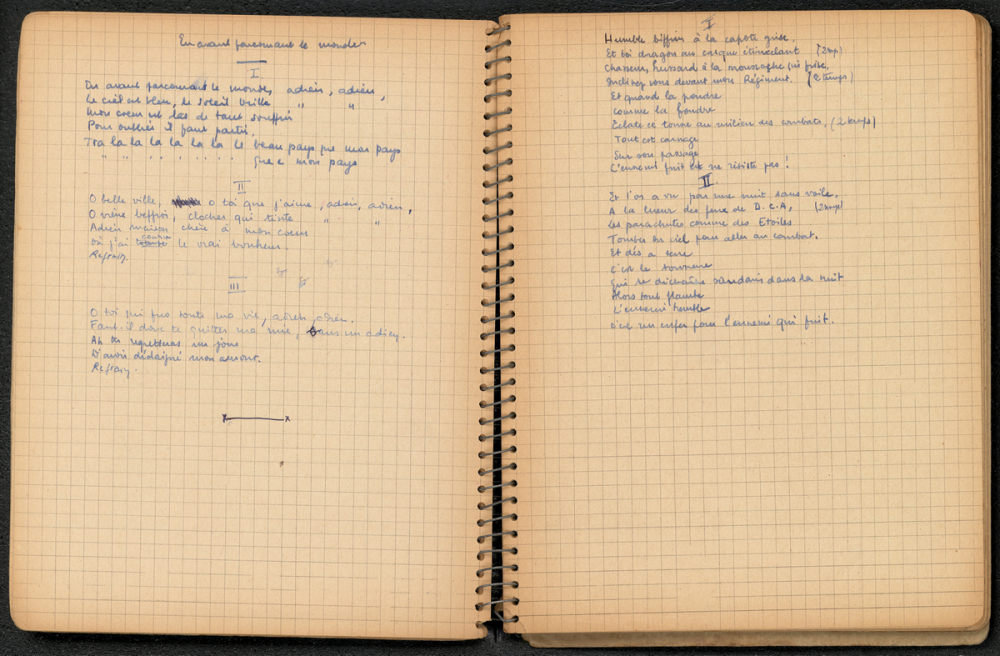 En avant parcourant le monde
I
En avant parcourant le monde, adieu, adieu,
Le ciel est bleu, le soleil brille " "
Mon coeur est las de tant souffrir
Pour oublier il faut partir.
Tra la la la la la la le beau pays que mon pays
" " " " " " " que mon pays
II
O belle ville, o toi que j'aime, adieu, adieu,
O vieux beffroi, clocher qui tinte " "
Adieu maison chère à mon coeur
où j'ai connu le vrai bonheur.
Refrain.
III
O toi qui fus toute ma vie, adieu, adieu.
Faut-il donc te quitter ma mie, sans un adieu.
Ah tu regretteras un jour
D'avoir dédaigné mon amour.
Refrain.
I
Humble biffin à la capote grise.
Et toi dragon au casque étincelant (2 temps)
Chasseur, hussard à la moustache qui frise,
Inclinez vous devant mon Régiment. (2 temps)
Et quand la poudre
comme la foudre
Eclate et tonne au milieu des combats. (2 temps)
Tout est carnage
Sur son passage
L'ennemi fuit et ne résiste pas !
II
Et l'on a vu par une nuit sans voile.
A la lueur des feux de D.C.A, (2 temps)
Les parachutes comme des Etoiles
Tomber du ciel pour aller au combat.
Et dès a terre
C'est le tonnerre
Qui se déchaîne soudain dans la nuit
Alors tout flambe
L'ennemi tremble
C'est un enfer pour l'ennemi qui fuit.